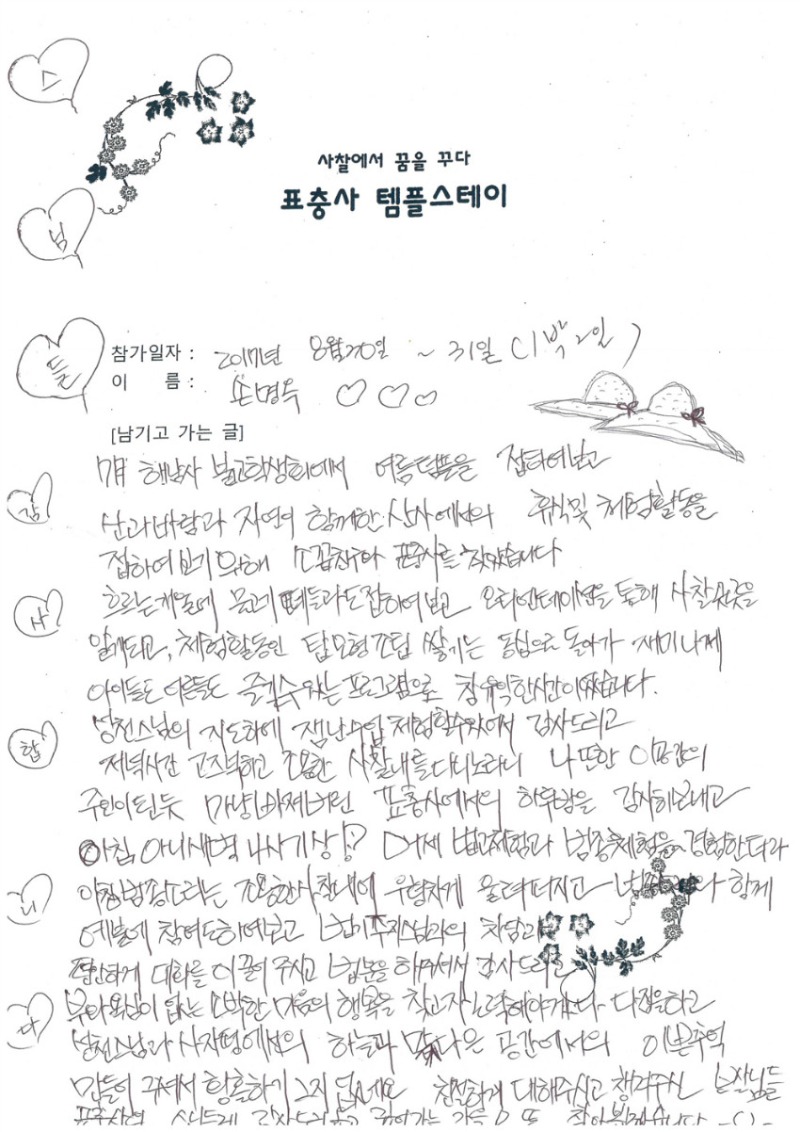 스
님
들
사찰에서 꿈을 꾸다
표충사 템플스테이
참가일자 : 2017년 8월 20일 ~ 31일 (1박 2일)
이 름 : 손명옥 ♡ ♡ ♡
[남기고 가는 글]
해남사 불교학생회에서 여름템플을 접하여보고
감
산과바람과 자연이 함께한 산사에서의 휴식및 체험활동을
접하여 보기 위해 표충사를 찾았습니다
사
흐르는계곡에 물고기떼들과도접하여보고 오리엔테이션을 통해 사찰
알게되고, 체험활동인 탑모형 쌓기는 동심으로 돌아가 재미나게
아이들도 어른들도 즐길수 있는 프로그램으로 참유익한시간이였습니다.
합
스님의 지도하에 체험할수있어서 감사드리고
저녁시간 고즈넉하고 조용한 사찰내를 다니노라니 나 또한 이공간의
주인이된듯 마냥 표충사에서의 하룻밤을 감사히보내고
아침 아니새벽 4시기상!? 어제 법고체험과 범종체험을 경험한터라
니
아침범종소리는 조용한사찰내에 우렁차게 울려퍼지고 함께
예불에 참여도하여보고 주지스님과의 차담
편안하게 대화를 이끌어 주시고 법문을 하여주셔서 감사드리고
다
욕심이 없는 소박한 마음의 행복을 찾고자 노력해야겠다 다짐을하고
스님과 사자평에서의 하늘과 맞나은 공간에서의 이쁜추억
만들어 주셔서 황홀하기 그지 없었네요 친절하게 대해주시고 챙겨주신 보살님들
표충사의 스님들께 감사드리고 또 찾아뵙겠습니다